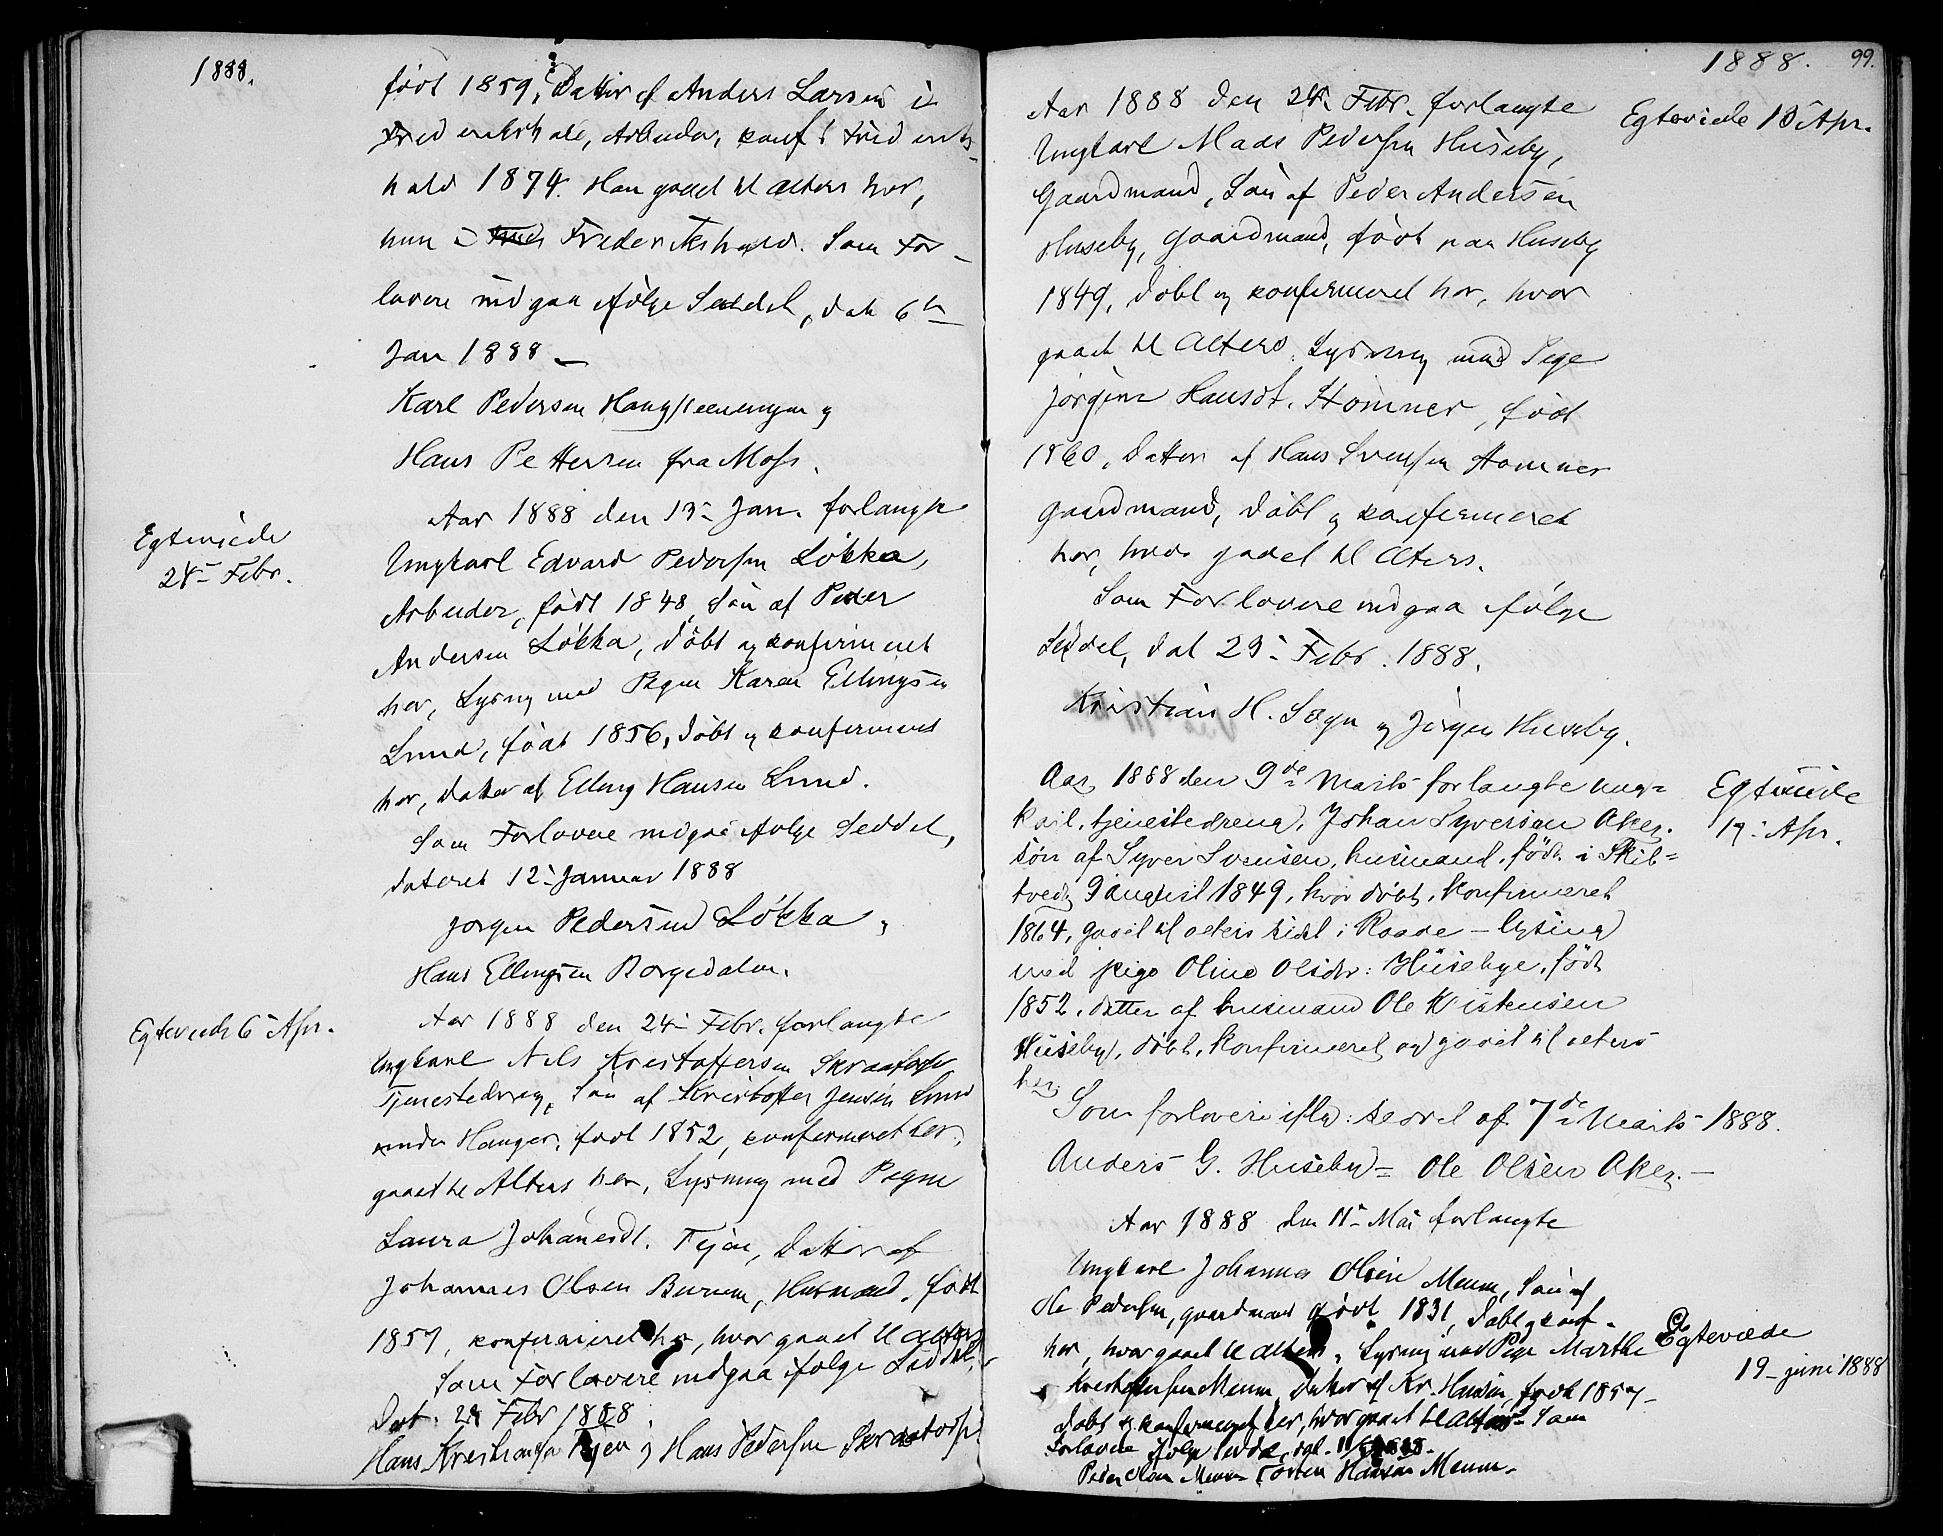 1888.
født 1859, Datter af Anders Larsen i
Fredrikshald, Arbeider, konf i Fredriks-
hald 1874. Han gaaet til Alters her,
hun i Frederikshald. Som For-
lovere indgaa ifølge Seddel, dat 6te
Jan 1888 –
Karl Pedersen Haugsteeneengen og
Hans Pettersen fra Moss.
Egteviede
24– Febr.
Aar 1888 den 13– Jan. forlangte
Ungkarl Edvard Pedersen Løkka,
Arbeider, født 1848, Søn af Peder
Andersen Løkka, døbt og konfirmeret
her, Lysning med Pigen Karen Ellingsen
Lund, født 1856, døbt og konfirmeret
her, datter af Elling Hansen Lund.
Som Forlovere indgaa ifølge Seddel,
dateret 12– Januar 1888
Jørgen Pedersen Løkka,
Hans Ellingsen Borgedalen.
Egteviede 6– Apr.
Aar 1888 den 24– Febr. forlangte
Ungkarl Nils Kristoffersen Skraatorp
Tjenestedreng, Søn af Kristoffer Jensen Lund
under Hanger, født 1852, konfirmeret her,
gaaet til Alters her, Lysning med Pigen
Laura Johannesdt. Tejen, Datter af
Johannes Olsen Burum, Husmand, født
1857, konfirmeret her, hvor gaaet til Alters
Som Forlovere indgaa ifølge Seddel,
Dat. 24 Febr 1888.
Hans Kristiansen Tejen og Hans Pedersen Skraatorp
1888. 99.
Aar 1888 den 24– Febr. forlangte
Ungkarl Mads Pedersen Huseby,
Gaardmand, Søn af Peder Andersen
Huseby, Gaardmand, født paa Huseby
1849, døbt og konfirmeret her, hvor
gaaet til Alters. Lysning med Pige
Jørgine Hansdt. Homner, født
1860, Datter af Hans Svensen Homner
gaardmand, døbt og konfirmeret
her, hvor gaaet til Alters.
Som Forlovere indgaa ifølge
Seddel, dat 23– Febr. 1888.
Kristian H. Sogn og Jørgen Huseby.
Egteviede 13– Apr.
Aar 1888 den 9de Marts forlangte ung=
karl, tjenestedreng, Johan Syversen Aker,
søn af Syver Svensen, husmand, født i Skib=
tvedt 9 august 1849, hvor døbt, konfirmeret
1864, gaaet til alters sidst i Raade – lysing
med pige Oline Olsdtr: Husebye, født
1852, datter af husmand Ole Kristensen
Huseby, døbt, konfirmeret og gaaet til alters
her,
Egteviede
19– Apr.
Som forlovere iflg: seddel af 7de Marts 1888.
Anders G. Huseby = Ole Olsen Aker. –
Aar 1888 den 11– Mai forlangte
Ungkarl Johannes Olsen Menne, Søn af
Ole Pedersen, gaardmand født 1831, døbt og konf.
her, hvor gaaet til Alters, Lysning med Pige Marthe
Kristoffersen Menne, datter af Kr. Hansen, født 1857 –
døbt og konfirmeret her, hvor gaaet til Alters. Som
Forlovere ifølge Seddel, dat. 11/5 1888.
Peder Olsen Menne Torsten Hansen Menne.
Egteviede
19– juni 1888